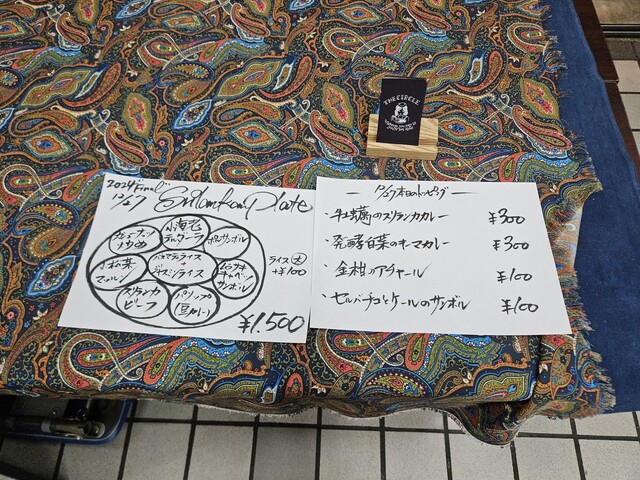 THE CIRCLE
2024 Final!!
12/27
Srilankan Plate
小海老
テルダーラ
ポルサンボル
バスマティライス
ジャスミンライス
小松菜
マッルン
キャベツ
サンボル
スリランカ
ビーフ
パリップ
豆カレー
ライス大
+¥100
¥1.500
12/27 本日のトッピング
・牡蠣のスリランカカレー ¥300
・発酵白菜のキーマカレー ¥300
・金柑のアチャール ¥100
・セルバチコとケールのサンボル ¥100